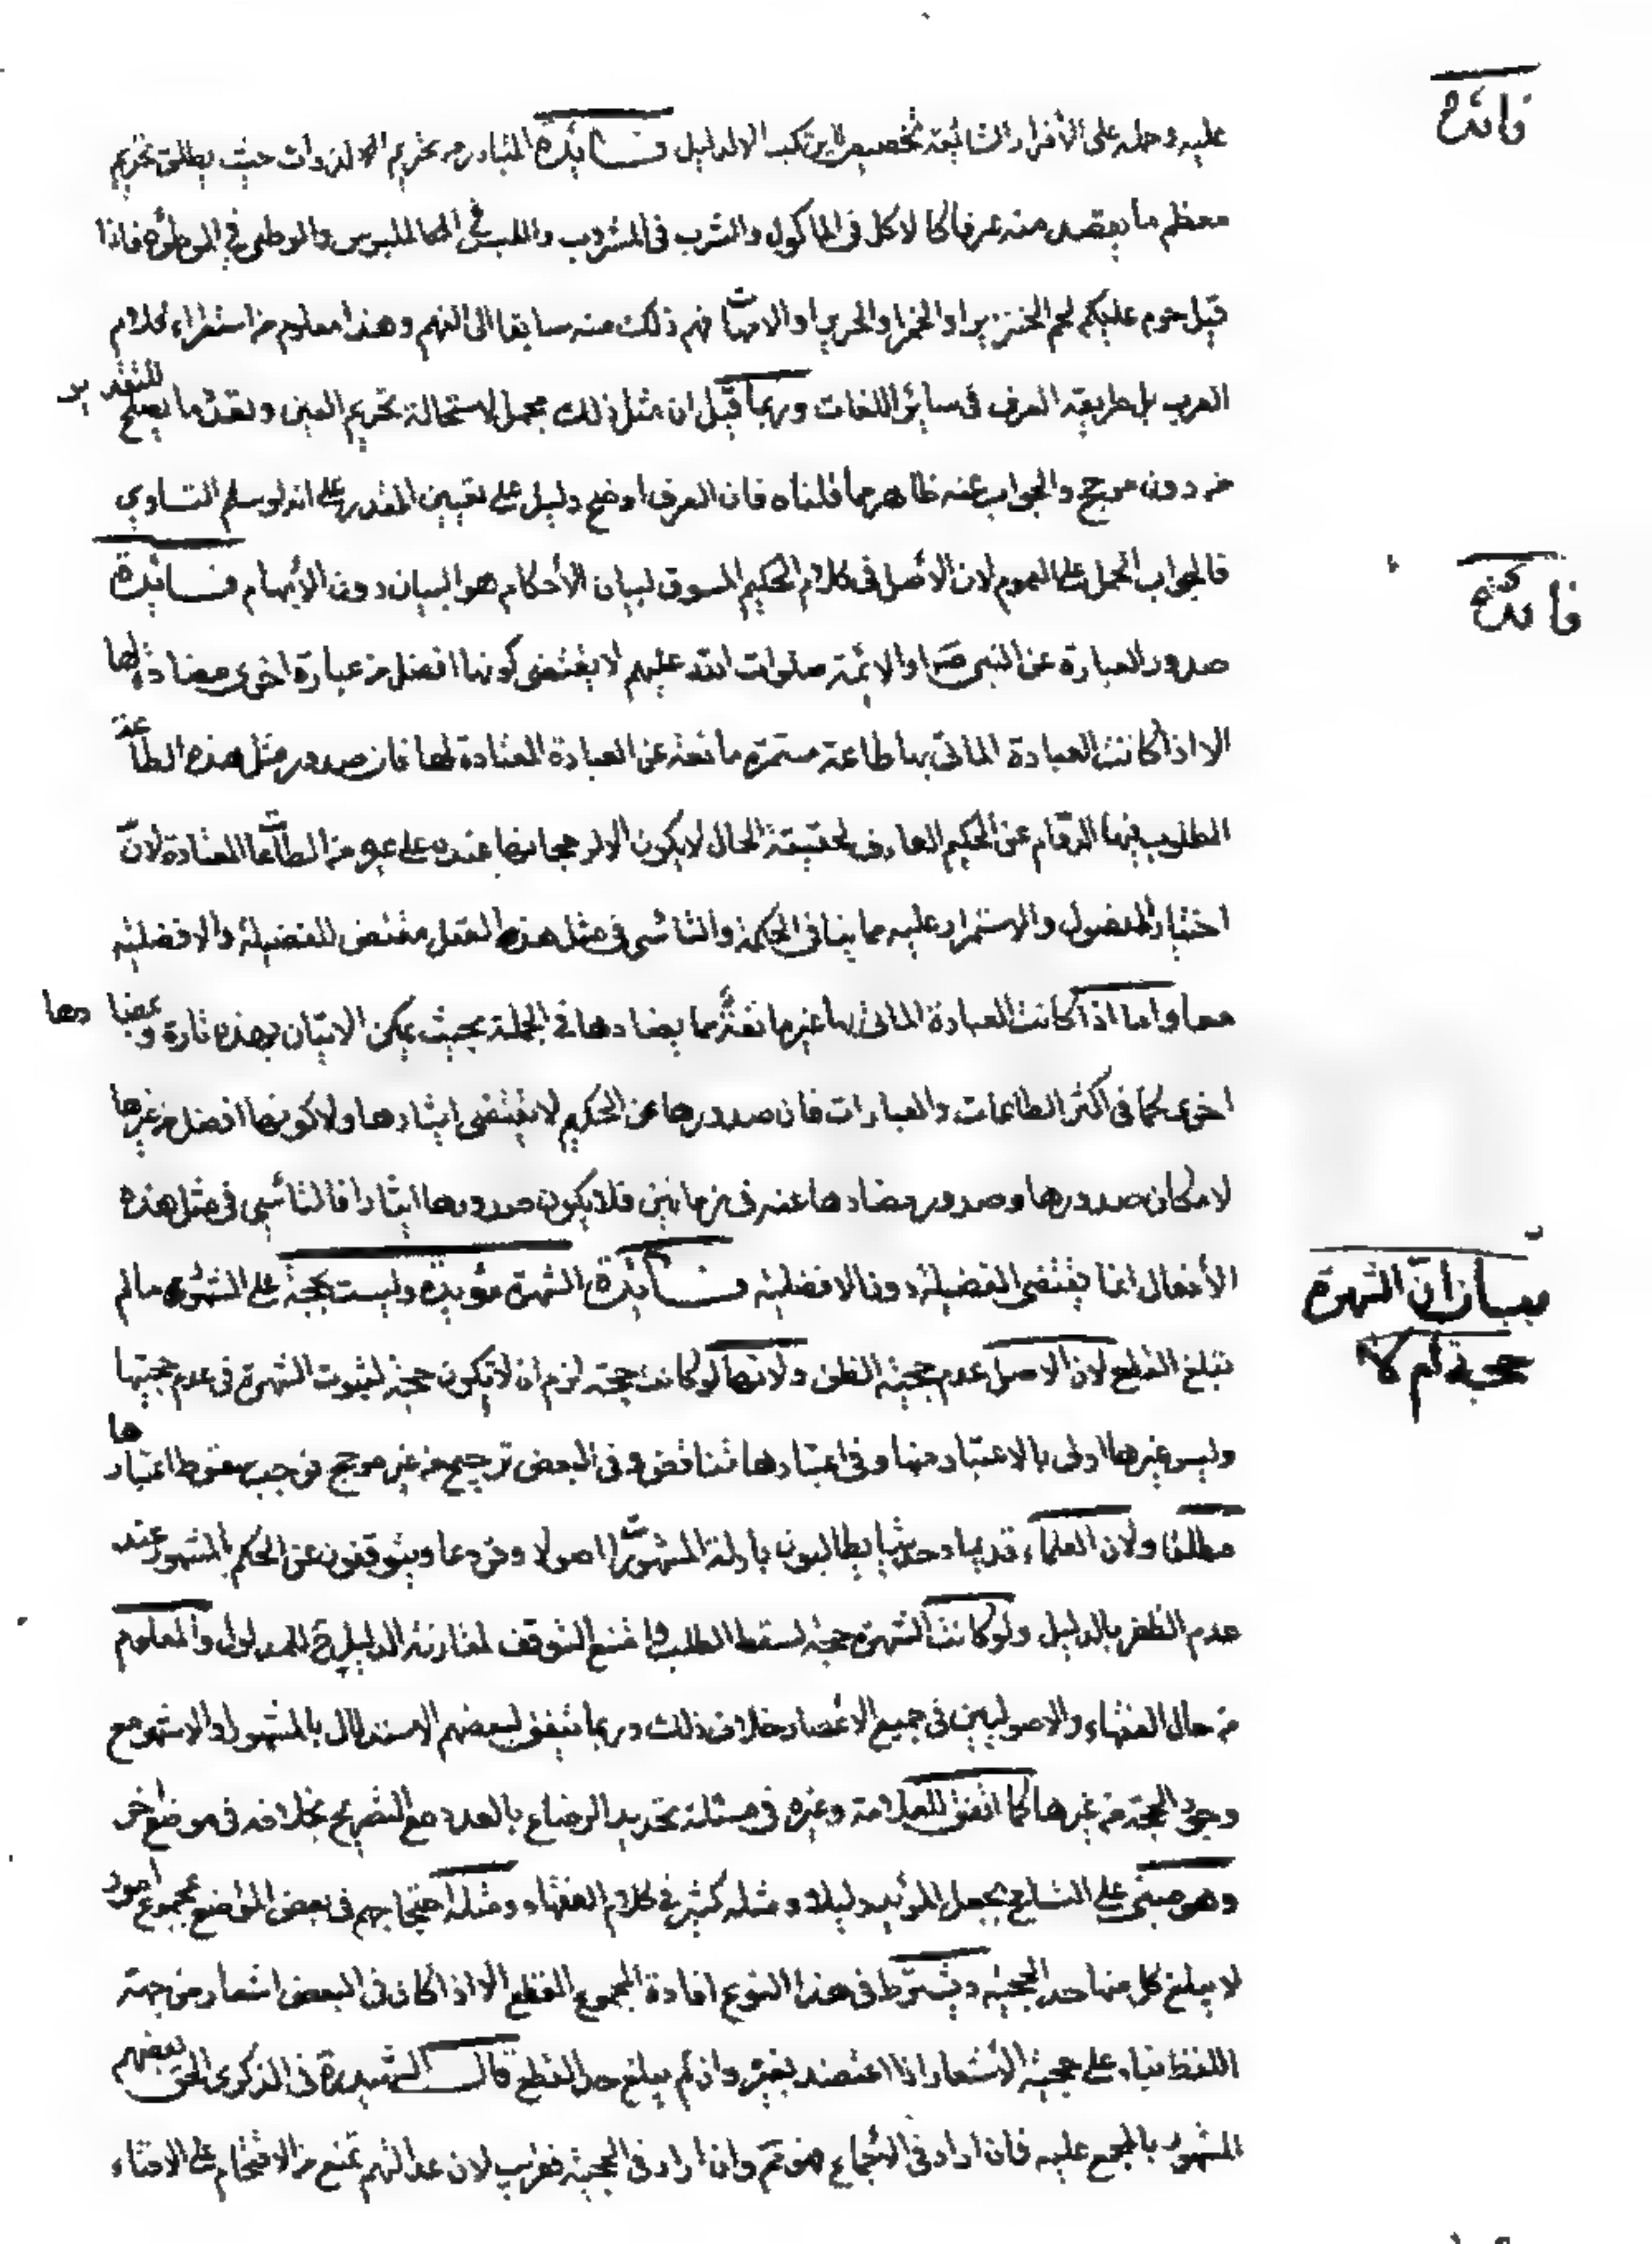 فائدة
عليه وحمله على الأفراد الشائعة تخصيص لا يرتكب الا لدليل فائدة المتبادر من تحريم الذوات حيث يطلق تحريم
معظم ما يقصد منه عرفا كالاكل في المأكول والشرب في المشروب واللبس في الملبوس والوطى في الموطؤة فاذا
قيل حرم عليكم لحم الخنزير او الخمر او الحرير او الامهات فهم ذلك منه سابقا الى الفهم وهذا معلوم من استقراء كلام
العرب بل طريقة العرف في سائر اللغات وربما قيل ان مثل ذلك مجمل لاستحالة تحريم العين وتعدد ما يصلح للتقدير
من دون مرجح والجواب عنه ظاهر مما قلناه فان العرف اوضح دليل على تعيين المقدر على انه لو سلم التساوي
فالجواب الحمل على العموم لان الأصل في كلام الحكيم المسوق لبيان الأحكام هو البيان دون الأبهام فائدة
فائدة
صدور العبادة عن النبي ص او الائمة صلوات الله عليهم لا يقتضى كونها افضل من عبادة اخرى مضادة لها
الا اذا كانت العبادة الماتى بها طاعة مستمرة مانعة عن العبادة المضادة لها فان صدور مثل هذه الطاعة
المطلوب فيها الدوام عن الحكيم العارف بحقيقة الحال لا يكون الا لرجحانها عنده على غيرها من الطاعات المضادة لان
اختيار المفضول والاستمرار عليه مما ينافى الحكمة والتاسى في مثل هذه الفعل مقتض للفضيلة والافضلية
معا واما اذا كانت العبادة الماتى بها غير مانعة مما يضادها في الجملة بحيث يمكن الاتيان بهذه تارة وبمضادها
اخرى كما في اكثر الطاعات والعبادات فان صدورها عن الحكيم لا يقتضى ايثارها ولا كونها افضل من غيرها
لامكان صدورها وصدور مضادها عنه في زمانين فلا يكون صدورها ايثارا فالتأسي في مثل هذه
الأفعال انما يقتضى الفضيلة دون الافضلية فائدة الشهرة مؤيدة وليست بحجة على المشهور ما لم
بيان ان الشهرة
حجة ام لا
تبلغ القطع لان الاصل عدم حجية الظن ولانها لو كانت حجة لزم ان لا تكون حجة لثبوت الشهرة في عدم حجيتها
وليس غيرها اولى بالاعتبار منها وفي اعتبارها تناقض وفي البعض ترجيح من غير مرجح فوجب سقوط اعتبارها
مطلقا ولان العلماء قديما وحديثا يطالبون بادلة المشهورات اصولا وفروعا ويتوقفون عن الحكم بالمشهور عند
عدم الظفر بالدليل ولو كانت الشهرة حجة لسقط الطلب وامتنع التوقف لمقارنة الدليل ح للمدلول والمعلوم
من حال الفقهاء والاصوليين في جميع الاعصار خلاف ذلك وربما يتفق لبعضهم الاستدلال بالمشهور او الاشهر مع
وجود الحجة من غيرها كما اتفق للعلامة وغيره في مسئلة تحديد الرضاع بالعدد مع التصريح بخلافه في موضع اخر
وهو مبنى على التسامح بجعل المؤيد دليلا ومثله كثير في كلام الفقهاء ومثله احتجاجهم في بعض المواضع بمجموع امور
لا يبلغ كل منها حد الحجية ويشترط في هذا النوع افادة المجموع القطع الا اذا كان في البعض اشعار من جهة
اللفظ بناء على حجية الأشعار اذا اعتضد بغيره وان لم يبلغ حد القطع قال الشهيد ره في الذكرى الحق بعضهم
المشهور بالمجمع عليه فان اراد في الأجماع فهو ثم وان اراد في الحجية فقريب لان عدالتهم تمنع من الاقتحام على الافتاء